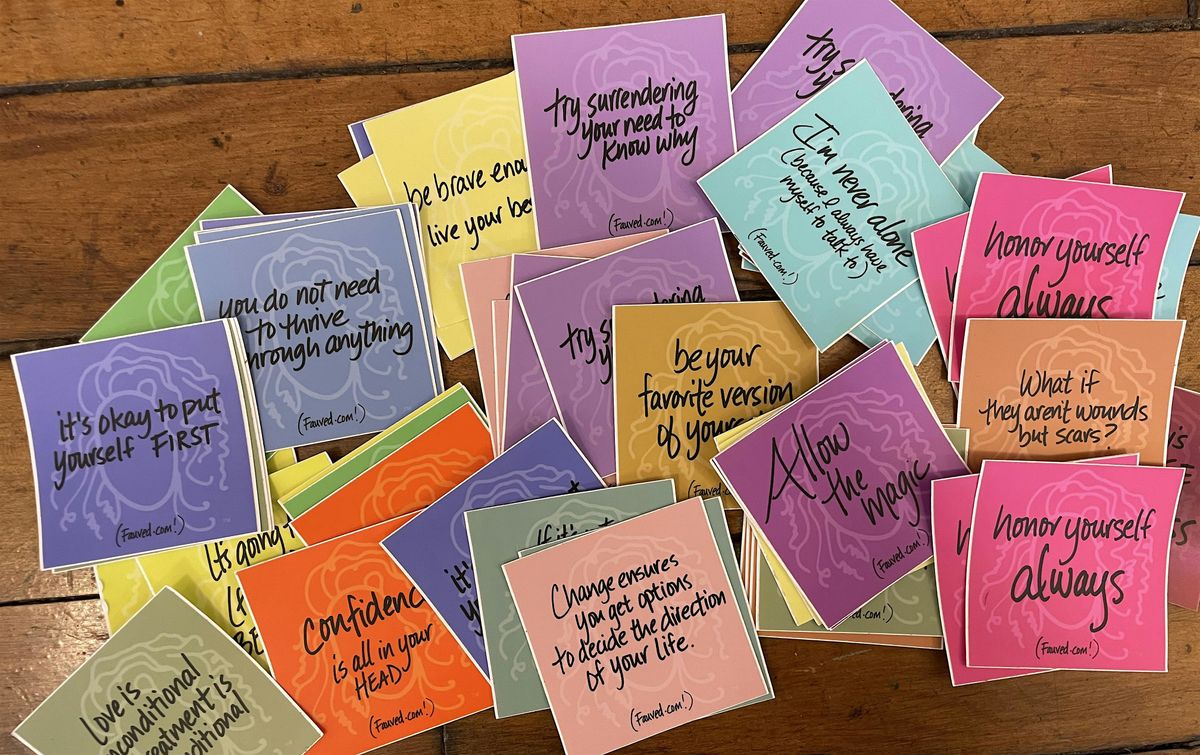 try surrendering
your need to
know why
(Fauved.com!)
try
I'm never alone
(because I always have
myself to talk to)
(Fauved.com!)
be brave
live your
honor yourself
always
you do not need
to thrive
through anything
(Fauved.com!)
try
be your
favorite version
of
What if
they arent wounds
but scars?
it's okay to put
yourself FIRST
(Fauved.com!)
Allow
the
magic
(Fauved.com!)
honor yourself
always
(Fauved.com!)
Its going
Confidence
is all in your
HEAD-
(Fauved.com!)
it's
If it's
Change ensures
you get options
to decide the direction
of your life.
(Fauved.com!)
Love is
unconditional
treatment is